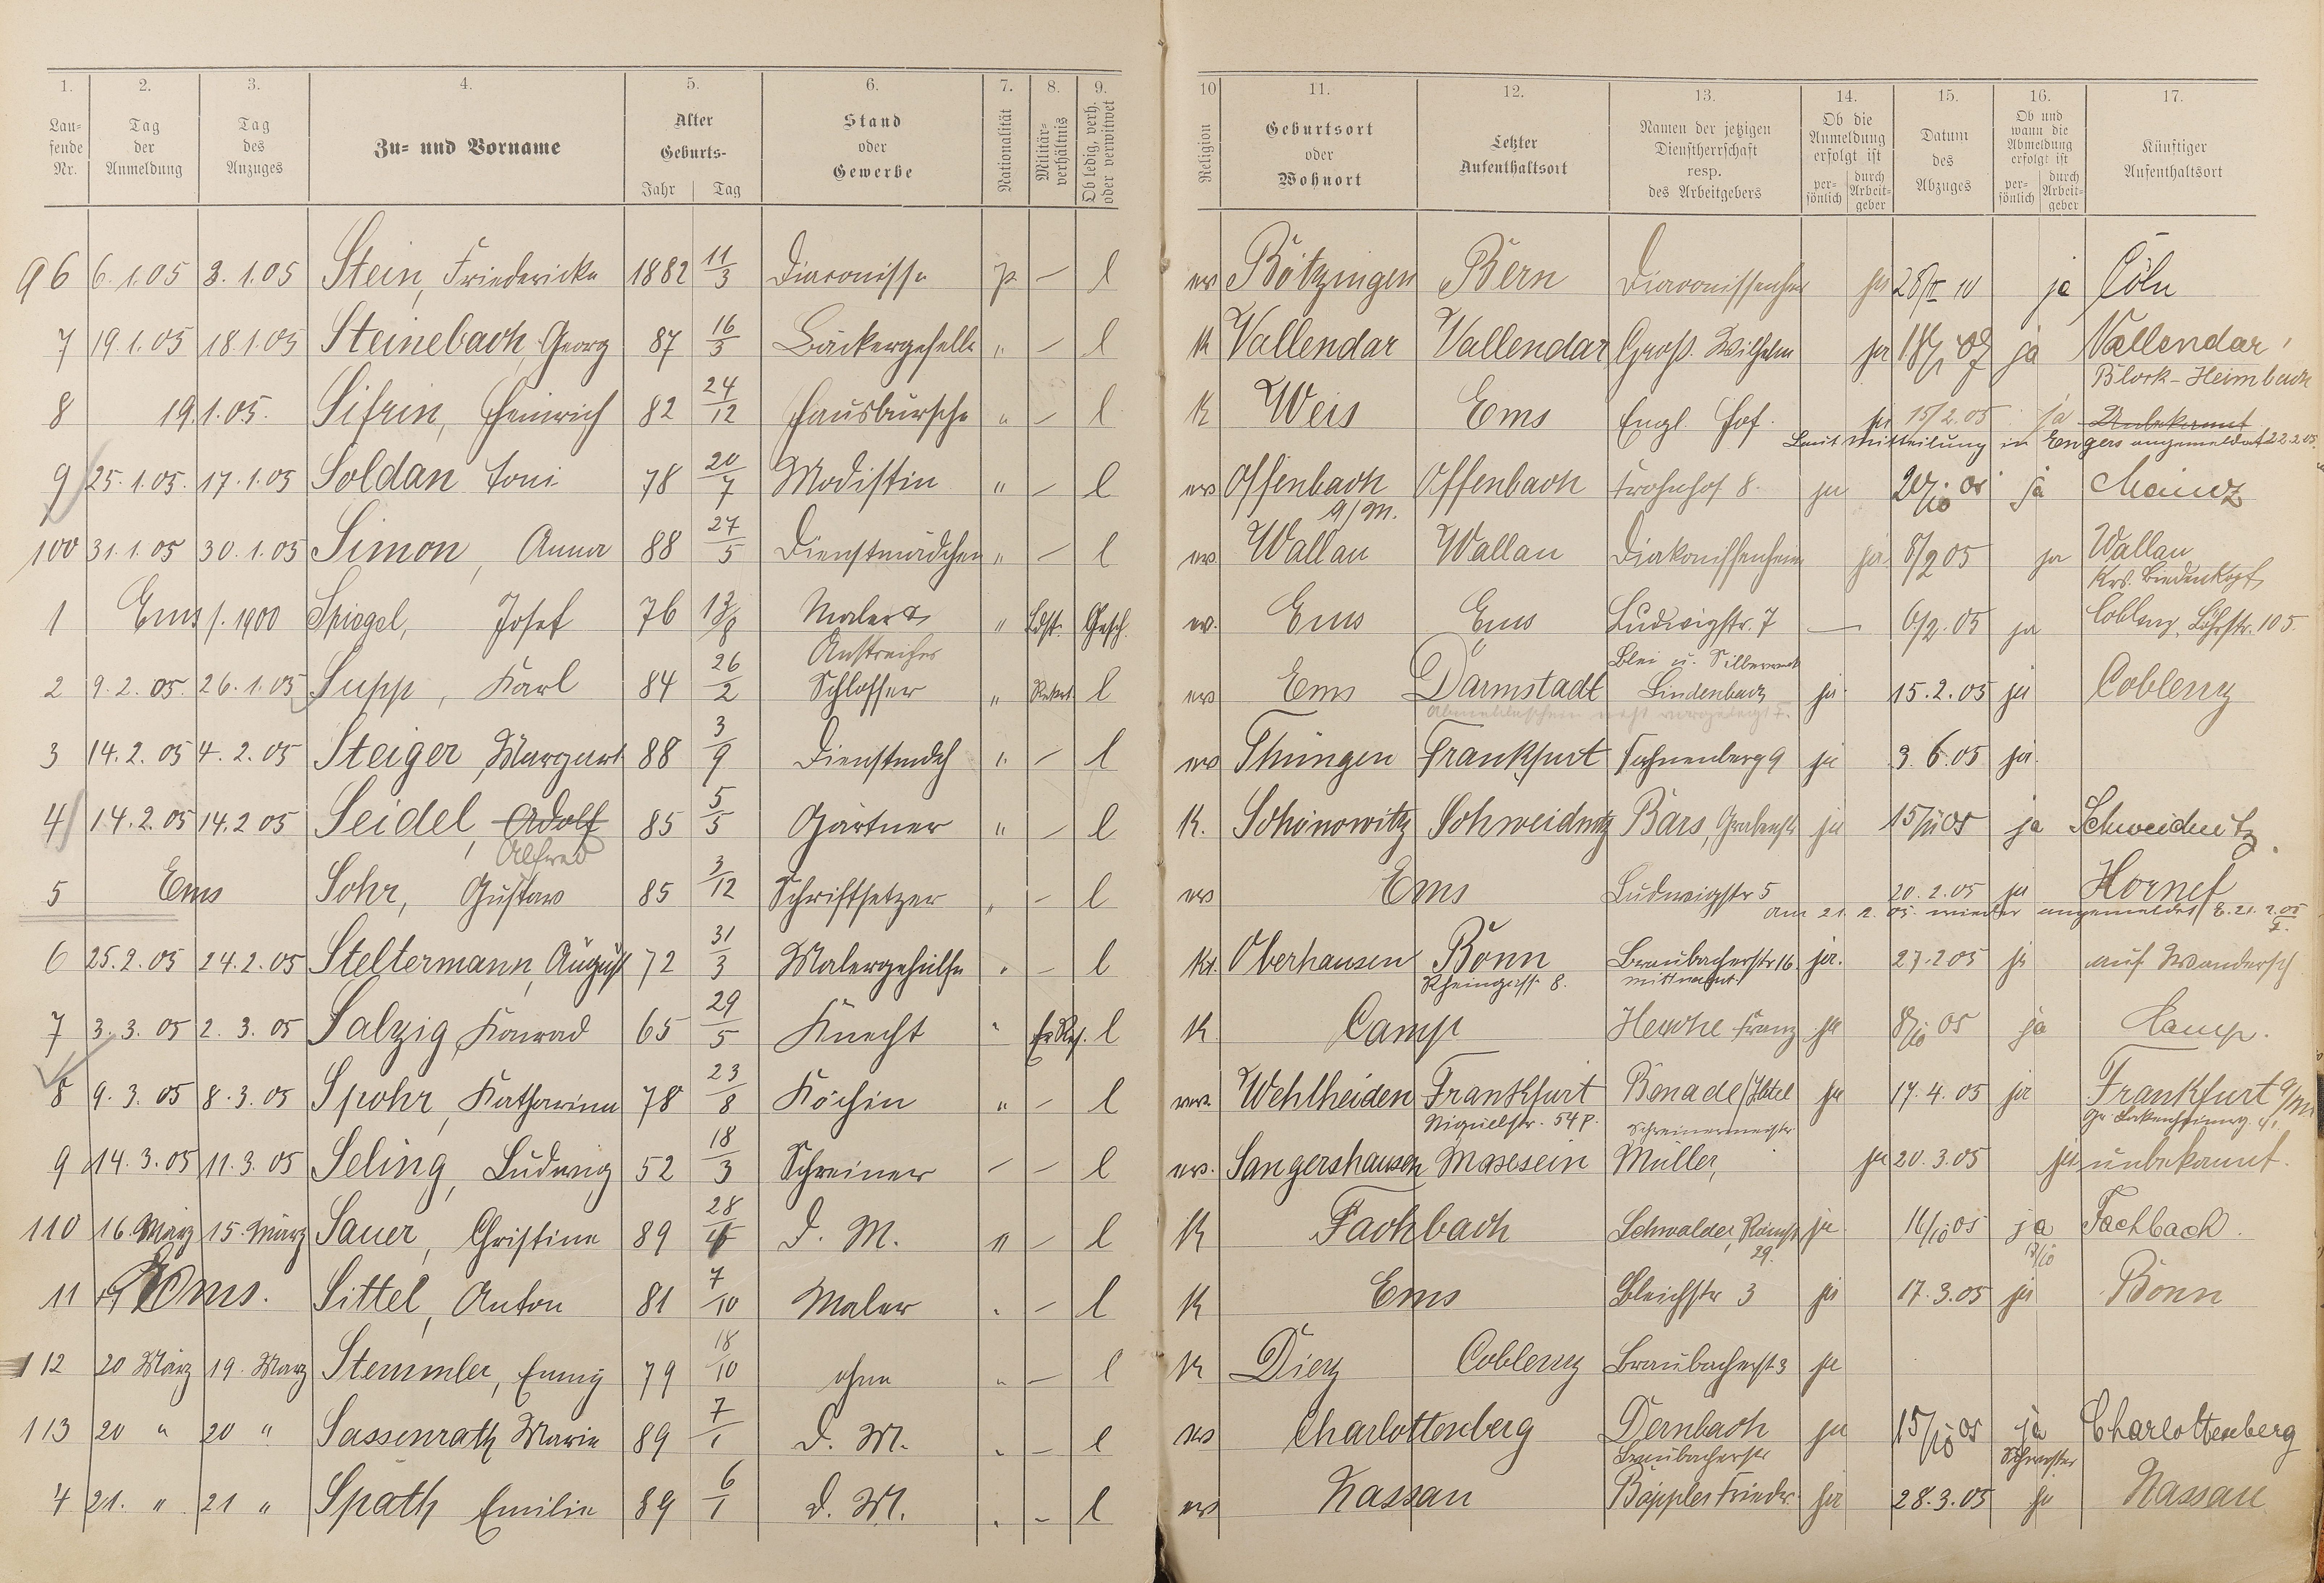 1. 2. 3. 4. 5. 6. 7. 8. 9. 10 11. 12. 13. 14. 15. 16. 17.
Lau-fende Nr. Tag der Anmeldung Tag des Anzuges Zu- und Vorname Alter Geburts- Jahr Tag Stand oder Gewerbe Nationalität Militär-verhältnis Ob ledig, verh. oder verwitwet Religion Geburtsort oder Wohnort Letzter Aufenthaltsort Namen der jetzigen Dienstherrschaft resp. des Arbeitgebers Ob die Anmeldung erfolgt ist per-sönlich durch Arbeit-geber Datum des Abzuges Ob und wann die Abmeldung erfolgt ist per-sönlich durch Arbeit-geber Künftiger Aufenthaltsort
96 6.1.05 3.1.05 Stein, Friedericke 1882 11/3 Diaconisse p. — l ev Bötzingen Bern ja 28/II 10 ja Cöln
7 19.1.05 18.1.05 Steinebach, Georg 87 16/3 Bäckergeselle " — l K Vallendar Vallendar Groß. Wilhelm ja ja Vallendar
Block-Heimbach
8 19.1.05. Sifrin, Heinrich 82 24/12 Hausbursche " — l K Weis Ems Engl. Hof. ja 15/2.05 ja Unbekannt
Laut Mitteilung in Engers angemeldet 22.2.05.
9 25.1.05. 17.1.05 Soldan Toni 78 20/7 Modistin " — l ev Offenbach Offenbach Frohnhof 8. ja ja Mainz
a/M.
100 31.1.05 30.1.05 Simon, Anna 88 27/5 Dienstmädchen " — l ev. Wallau Wallau Diakonissenheim ja 8/2 05 ja Wallau
Krs. Biedenkopf
1 Ems f. 1900 Spiegel, Josef 76 13/8 Maler & " Ldst. Gesch. ev. Ems Ems Ludwigstr. 7 — 6/2.05 ja Coblenz, Löhrstr. 105.
Anstreicher Blei u. Silberwerk
2 9.2.05. 26.1.05 Supp, Karl 84 26/2 Schlosser " l ev Ems Darmstadt Lindenbach ja 15.2.05 ja Coblenz
3 14.2.05 4.2.05 Steiger, Margaret 88 3/9 Dienstmdch " — l ev Thüngen Frankfurt Hahnenberg 9 ja 3.6.05 ja.
4 14.2.05 14.2 05 Seidel, Adolf 85 5/5 Gärtner " — l K. Schönowitz Schweidnitz Bärs, Grabenstr ja 15/II 05 ja Schweidnitz.
Alfred
5 Ems Sohr, Gustav 85 3/12 Schriftsetzer " — l ev Ems Ludwigstr 5 20.2.05 ja Honnef
am 21. 2. 05. wieder angemeldet E. 21.2.05
6 25.2.05 24.2.05 Steltermann, August 72 31/3 Malergehülfe " — l Kt. Oberhausen Bonn Braubacherstr 16. ja. 27.2 05 ja auf Wandersch
Rheingasse 8.
7 3.3.05 2.3.05 Salzig, Konrad 65 29/5 Knecht " Er Res. l K Camp Franz ja 8/10 05 ja Camp.
8 9.3.05 8.3.05 Spohr, Katharina 78 23/8 Köchin " — l ev. Wehlheiden Frankfurt Benade/Hotel ja 17.4.05 ja Frankfurt a/M
Niquelstr. 54 p. Schreinermeister
9 14.3.05 11.3.05 Seling, Ludwig 52 18/3 Schreiner — — l ev. Sangershausen Masesein Müller, ja 20.3.05 ja unbekannt.
110 16. März 15. März Sauer, Christine 89 28 D. M. " — l K Fachbach Schwalder, Römst ja 16/10 05 ja Fachbach.
29. 17/10
11 Ems. Sittel, Anton 81 7/10 Maler " — l K Ems Bleichstr 3 ja 17.3.05 ja Bonn
112 20 März 19. März Stemmler, Enny 79 18/10 ohne " — l K Diez Coblenz Braubacherst 3 ja
113 20 " 20 " Sassenrath Marie 89 7/1 D. M. " — l ev Charlottenberg Dernbach ja 15/10 05 ja Charlottenberg
Braubacherstr Schwester
4 21. " 21 " Späth Emilie 89 6/1 D. M. " — l ev Nassau Bäppler Friedr. ja 28.3.05 ja Nassau